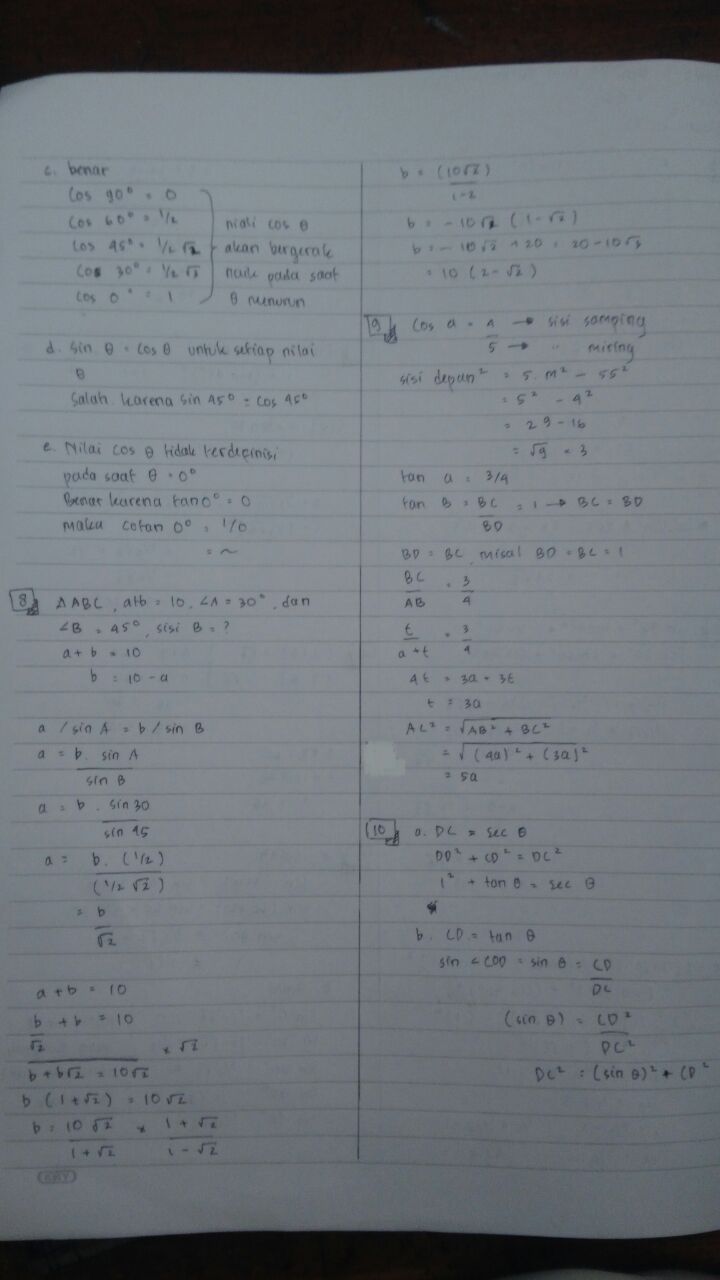 c. benar
Cos 90° = 0
Cos 60° = 1/2
Cos 45° = 1/2 √2
Cos 30° = 1/2 √3
Cos 0° = 1
nilai cos θ
akan bergerak
naik pada saat
θ menurun
d. sin θ = cos θ untuk setiap nilai
θ
Salah karena sin 45° = cos 45°
e. Nilai cos θ tidak terdefinisi
pada saat θ = 0°
Benar karena tan 0° = 0
maka cotan 0° = 1/0
= ~
8 ΔABC, a+b = 10, ∠A = 30°, dan
∠B = 45°, sisi B = ?
a + b = 10
b = 10 - a
a / sin A = b / sin B
a = b. sin A
sin B
a = b . sin 30
sin 45
a = b. (1/2)
(1/2 √2)
= b
√2
a + b = 10
b + b = 10
√2
× √2
b + b√2 = 10√2
b (1+√2) = 10√2
b = 10 √2 × 1 + √2
1 + √2 1 - √2
b = (10√2)
1-2
b = - 10√2 (1-√2)
b = - 10√2 + 20 = 20 - 10√2
= 10 (2-√2)
9 Cos a = 4 → sisi samping
5 → " miring
sisi depan² = 5. m² - 55²
= 5² - 4²
= 29 - 16
= √9 = 3
tan a = 3/4
tan B = BC = 1 → BC = BD
BD
BD = BC, misal BD = BC = 1
BC = 3
AB 4
t = 3
a+t 4
4t = 3a + 3t
t = 3a
AC² = √AB² + BC²
= √(4a)² + (3a)²
= 5a
10 a. DC = sec θ
OD² + CD² = DC²
1² + tan θ = sec θ
b. CD = tan θ
sin ∠COD = sin θ = CD
DC
(sin θ) = CD²
DC²
DC² = (sin θ)² + CD²
KKY